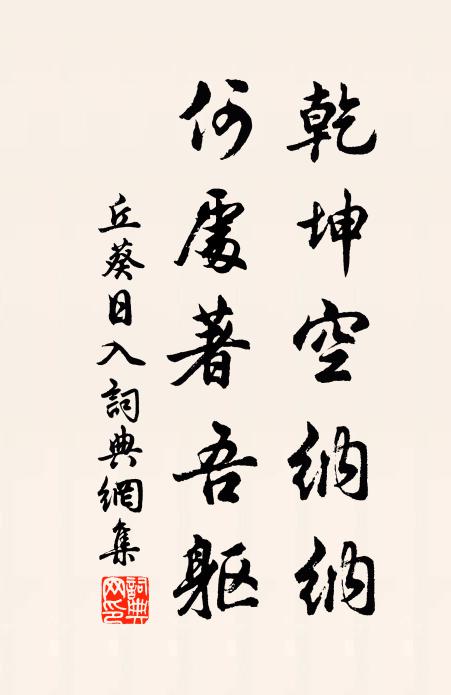 乾坤空納納
何處著吾軀
丘葵日入詞典網集
詞典網印